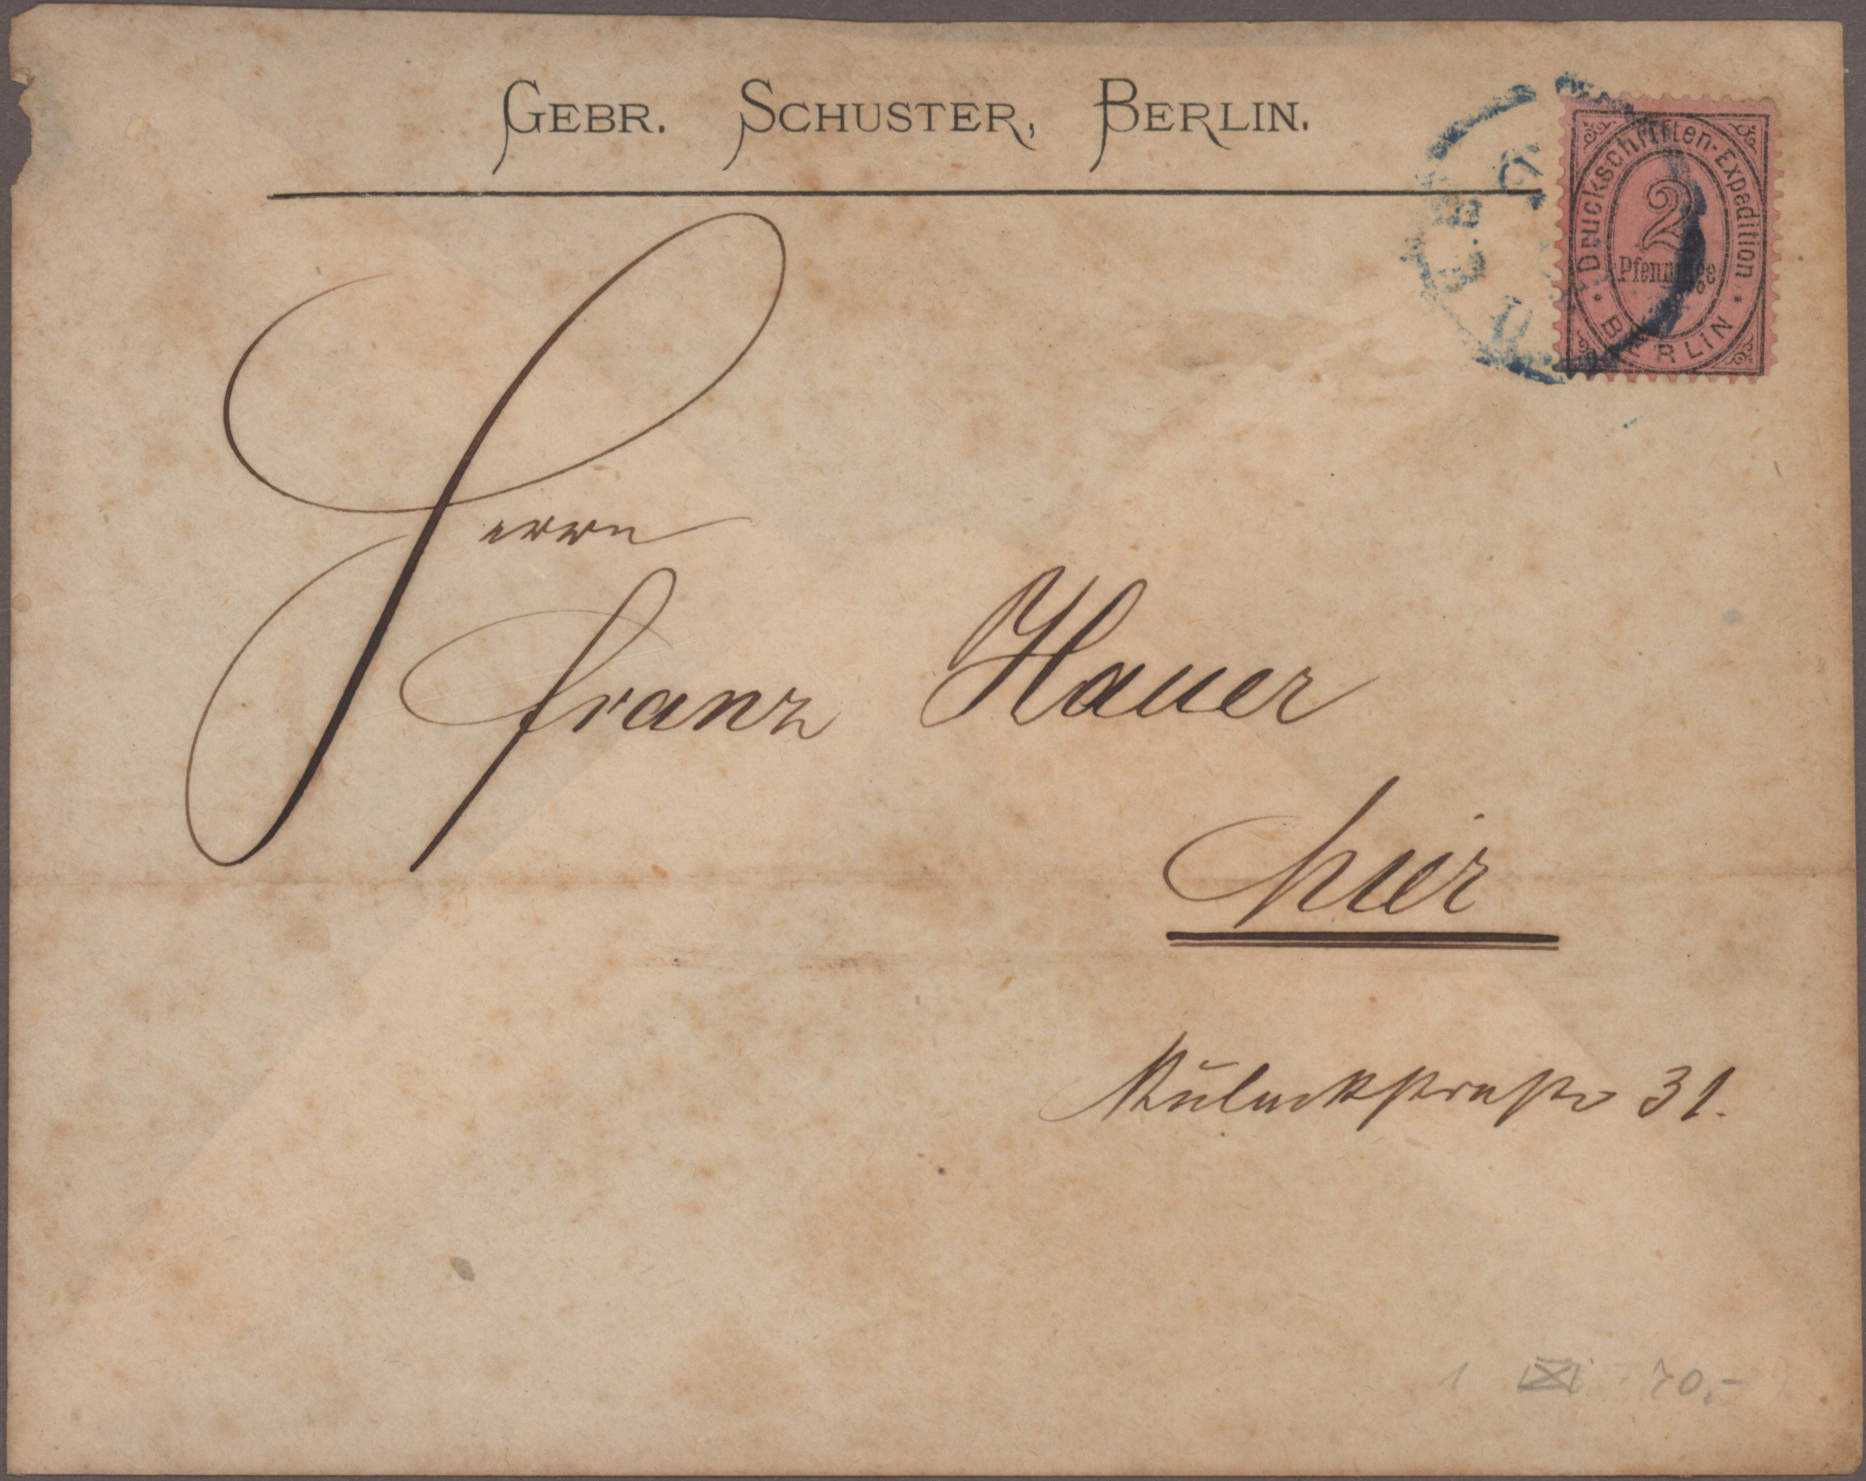 GEBR. SCHUSTER, BERLIN.
Druckschriften-Expedition
2
Pfennige
BERLIN
Herrn
Franz Hauer
hier
31.
70,-